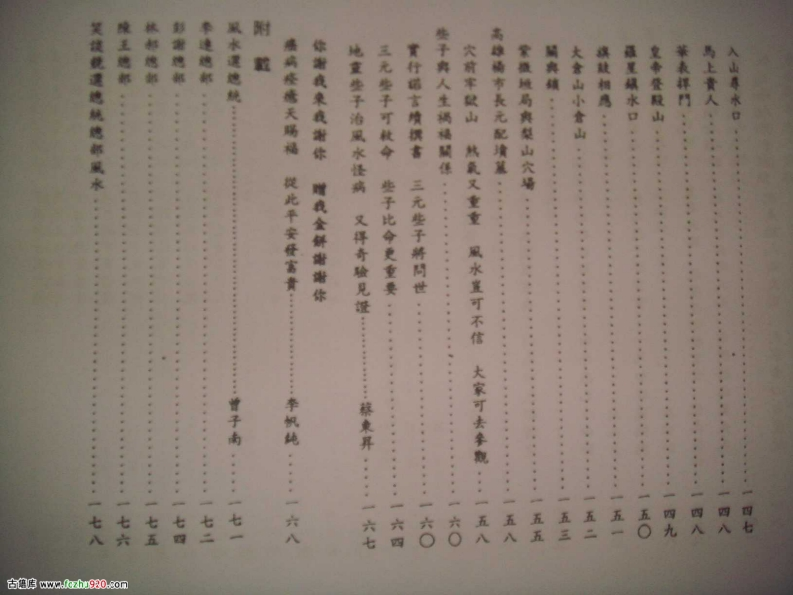 入山尋水口 一四七
馬上貴人 一四八
華表捍門 一四八
皇帝登殿山 一四九
羅星鎮水口 一五〇
旗鼓相應 一五一
大倉山小倉山 一五二
關與鎖 一五三
紫微垣局與梨山穴場 一五五
高雄橋市長元配墳墓 一五八
穴前牢獄山 煞氣又重重 風水豈可不信 大家可去參觀 一五八
些子與人生禍福關係 一六〇
實行諾言續撰書 三元些子將問世 一六〇
三元些子可救命 些子比命更重要 一六四
地靈些子治風水怪病 又得奇驗見證 蔡東昇 一六七
你謝我來我謝你 贈我金餅謝謝你
癌病痊癒天賜福 從此平安發富貴 李帆鈍 一六八
附載
風水選總統 曾子南 一七一
李連總部 一七二
彭謝總部 一七四
林郝總部 一七五
陳王總部 一七六
笑談競選總統總部風水 一七八
古籍库 www.fczhu920.com